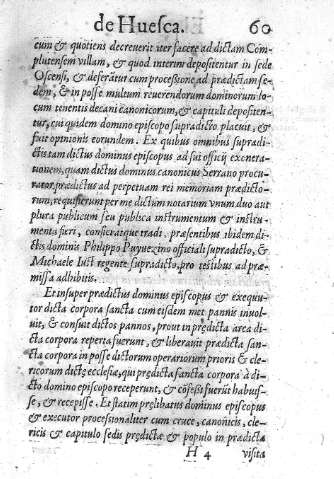 de Huesca. 60
cum & quotiens decreverit iter facere ad dictam Com-
plutensem villam, & quod interim depositentur in sede
Oscensi, & deferãtur cum processione ad prædictam se-
dem, & in posse multum reverendorum dominorum lo-
cum tenentis decani canonicorum, & capituli depositen-
tur, cui quidem domino episcopo supradicto placuit, &
fuit opinionis eorundem. Ex quibus omnibus supradi-
ctis tam dictus dominus episcopus ad sui officij exonera-
tionem, quam dictus dominus canonicus Serrano procu-
rator prædictus ad perpetuam rei memoriam prædicto-
rum, requisierunt per me dictum notarium vnum duo aut
plura publicum seu publica instrumentum & instru-
menta fieri, consicratque tradi. præsentibus ibidem di-
ctis dominis Philippo Puyuezino officiali supradicto, &
Michaele Iust regente supradicto, pro testibus ad præ-
missa adhibitis.
Et insuper prædictus dominus episcopus & exequu-
tor dicta corpora sancta cum eisdem met pannis invol-
uit, & consuit dictos pannos, prout in prędicta arca di-
cta corpora reperta fuerunt, & liberauit prædicta san-
cta corpora in posse dictorum operariorum prioris & cle-
ricorum dictę ecclesię, qui prędicta sancta corpora à di-
cto domino episcopo receperunt, & cõfessi fuerũt habuis-
se, & recepisse. Et statim prętibatus dominus episcopus
& executor processionaliter cum cruce, canonicis, cle-
ricis & capitulo sedis prędictæ & populo in prædicta
H 4 visita